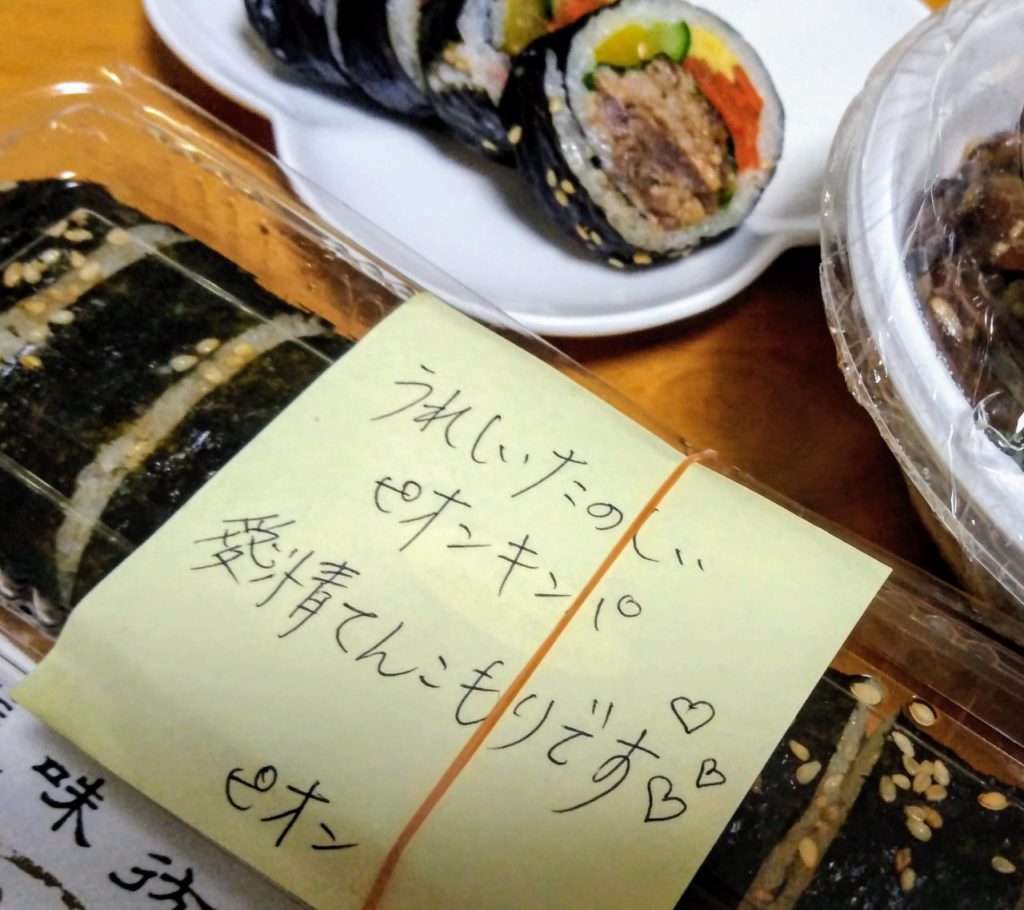 うれしいたのしい
ピオンキンパ
愛情てんこもりです♡
♡♡
ピオン
味